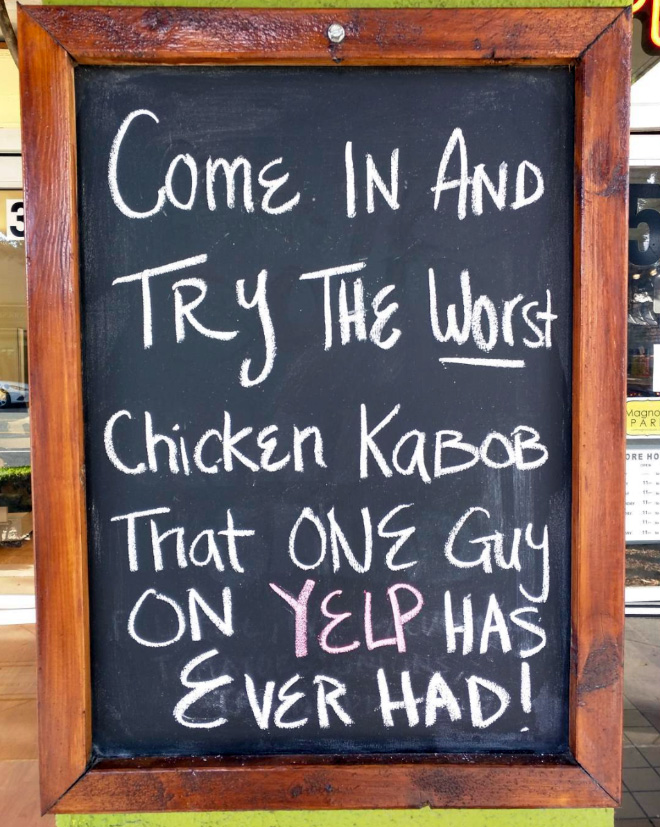 Come IN AND
TRY THE Worst
Chicken KaBOB
That ONE Guy
ON YELP HAS
EVER HAD!
3
5
Magno
PAR
ORE HO
OPEN